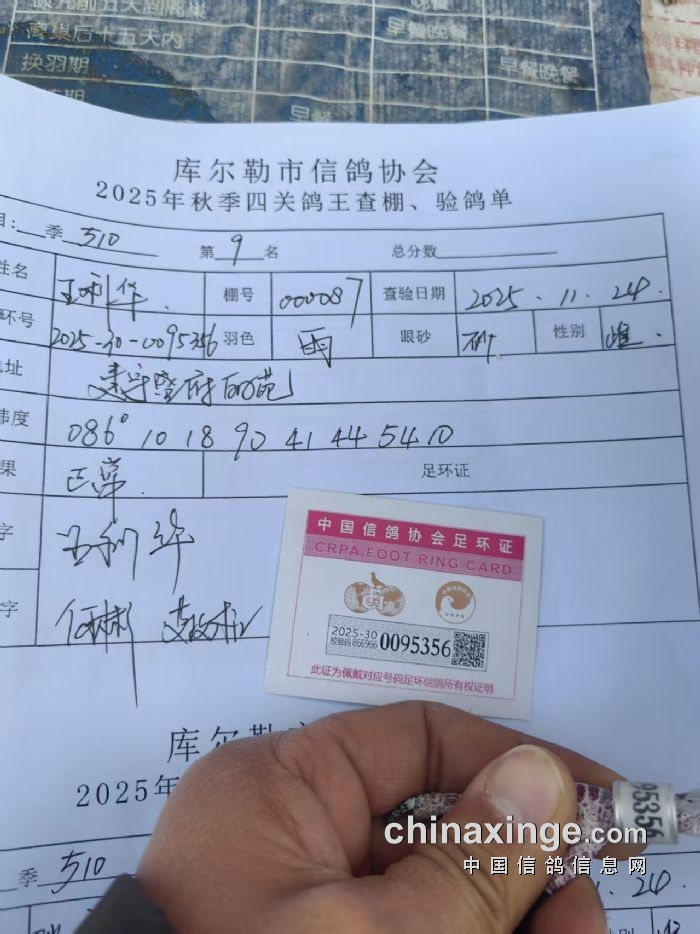 离巢后十五天内
换羽期
早餐晚餐
早餐晚餐
早餐
库尔勒市信鸽协会
2025年秋季四关鸽王查棚、验鸽单
目: 季 510 第 9 名 总分数
姓名 王利华 棚号 000087 查验日期 2025.11.24.
环号 2025-30-0095356 羽色 雨 眼砂 砂 性别 雌.
地址
纬度 086° 10 18 90 41 44 54 10
果 正常. 足环证
字 王利华
字
中国信鸽协会足环证
CRPA FOOT RING CARD
2025-30
校验码 866966 0095356
此证为佩戴对应号码足环信鸽所有权证明
库尔勒
2025年
季 510
95356
chinaxinge.com
中国信鸽信息网